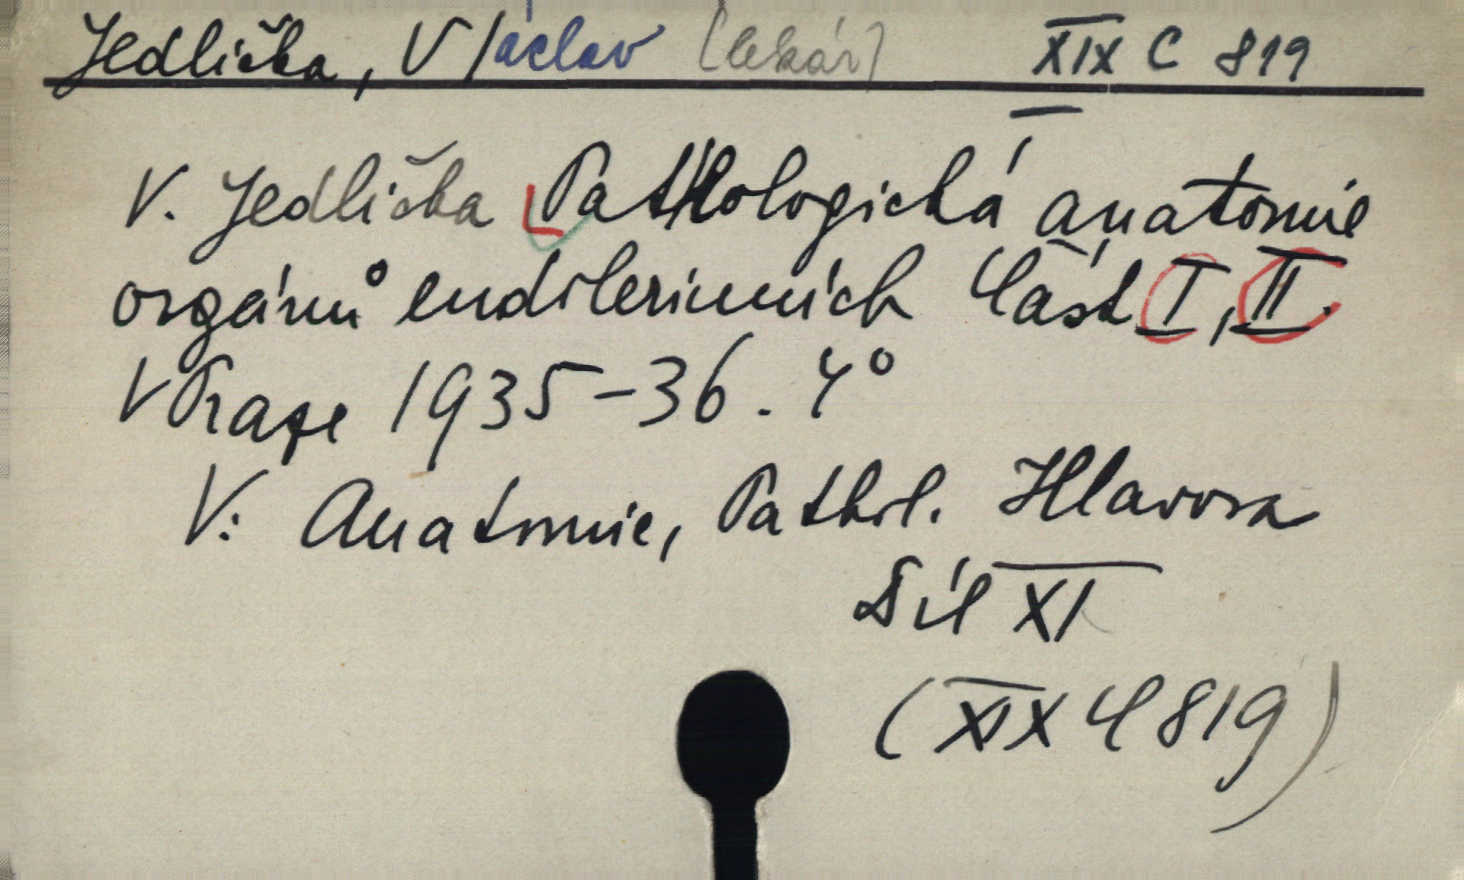 Jedlička, Václav [lékař] XIX C 819
V. Jedlička Pathologická anatomie
orgánů endokrinních Část I, II.
V Praze 1935-36. 4°
V: Anatomie, Pathol. Hlavova
Díl XI
(XIX C 819)